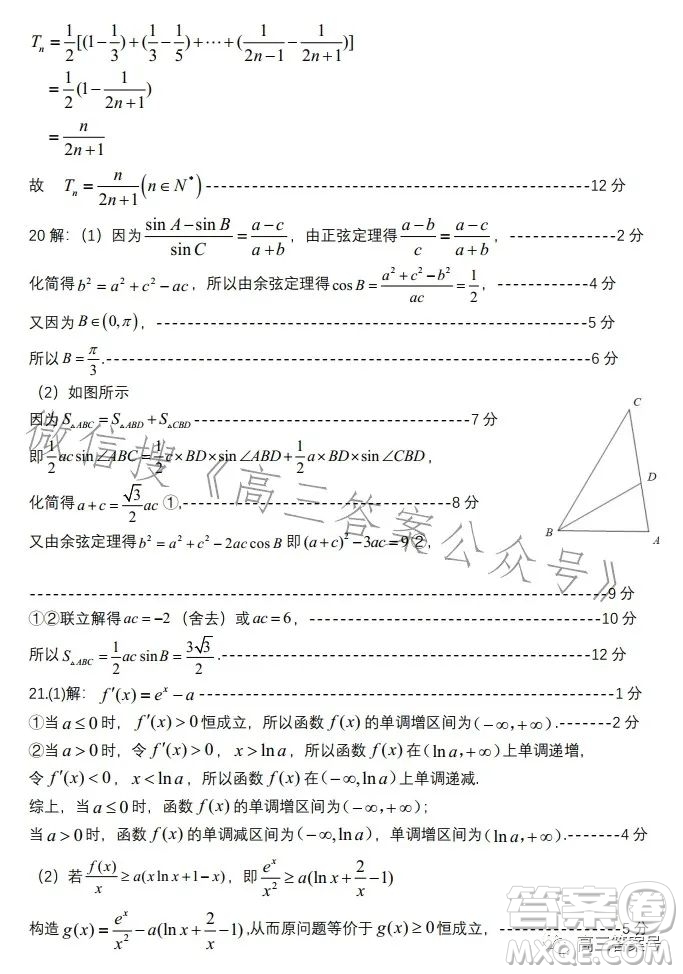 T_n = 1/2[(1-1/3)+(1/3-1/5)+⋯+(1/(2n-1)-1/(2n+1))]
= 1/2(1-1/(2n+1))
= n/(2n+1)
故 T_n = n/(2n+1)(n∈N*)------------------------------------------------12 分
20 解：（1）因为(sin A-sin B)/sin C=(a-c)/(a+b)，由正弦定理得(a-b)/c=(a-c)/(a+b)，--------------2 分
化简得b²=a²+c²-ac，所以由余弦定理得cos B=(a²+c²-b²)/ac=1/2，------------4 分
又因为B∈(0,π)，------------------------------------------------------5 分
所以B=π/3.--------------------------------------------------------------6 分
（2）如图所示
因为S△ABC=S△ABD+S△CBD------------------------------------7 分
即1/2 ac sin∠ABC=1/2 c×BD×sin∠ABD+1/2 a×BD×sin∠CBD，
化简得a+c=√3/2 ac ①,-----------------------------------8 分
又由余弦定理得b²=a²+c²-2ac cos B 即(a+c)²-3ac=9②，
------------------------------------------------------------------------9 分
①②联立解得ac=-2（舍去）或ac=6，--------------------------------10 分
所以S△ABC=1/2 ac sin B=3√3/2.----------------------------------------------12 分
C
D
B
A
21.(1)解：f′(x)=eˣ-a----------------------------------------------------1 分
①当a≤0时，f′(x)>0恒成立，所以函数f(x)的单调增区间为(-∞,+∞).-------2 分
②当a>0时，令f′(x)>0，x>ln a，所以函数f(x)在(ln a,+∞)上单调递增，
令f′(x)<0，x<ln a，所以函数f(x)在(-∞,ln a)上单调递减.
综上，当a≤0时，函数f(x)的单调增区间为(-∞,+∞)；
当a>0时，函数f(x)的单调减区间为(-∞,ln a)，单调增区间为(ln a,+∞).-------4 分
（2）若f(x)/x≥a(x ln x+1-x)，即eˣ/x²≥a(ln x+2/x-1)
构造g(x)=eˣ/x²-a(ln x+2/x-1),从而原问题等价于g(x)≥0恒成立，--------5 分
微信搜《高三答案公众号》
答案圈
高三答案号
MXQE.COM